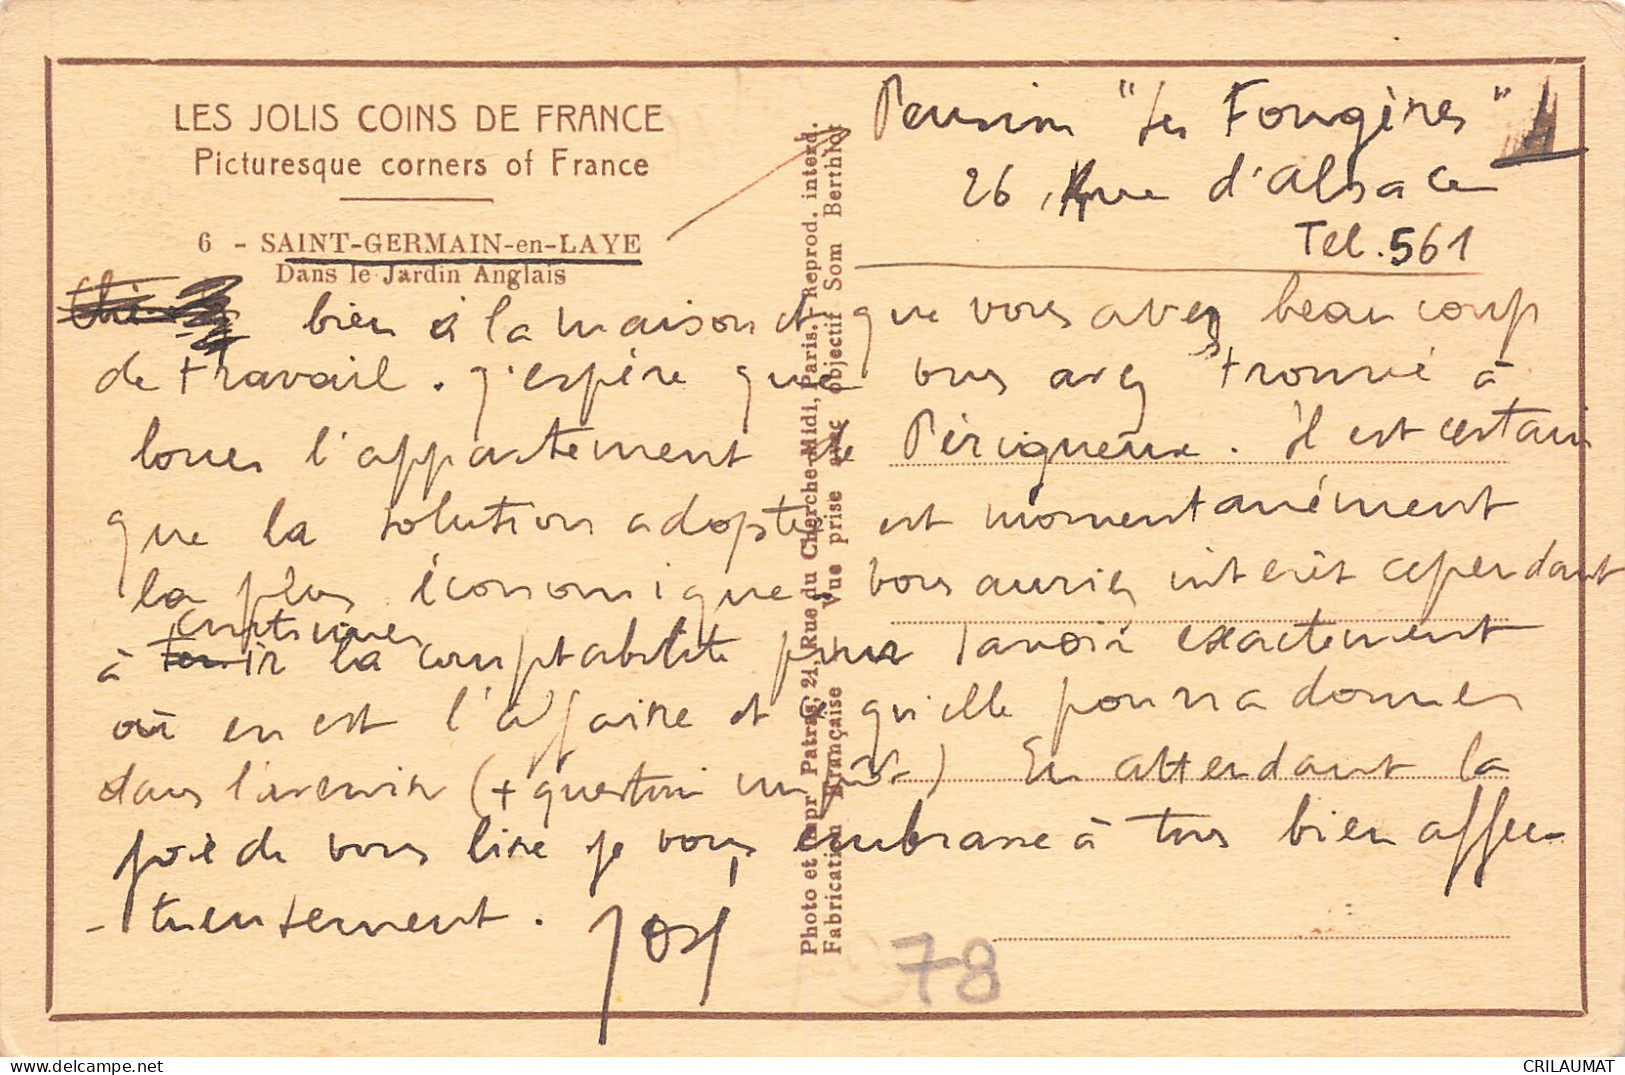 LES JOLIS COINS DE FRANCE
Picturesque corners of France
6 - SAINT-GERMAIN-en-LAYE
Dans le Jardin Anglais
Pension "Les Fougères"
26, Rue d'Alsace
Tel. 561
bien à la maison et que vous avez beaucoup
de travail. J'espère que vous avez trouvé à
louer l'appartement de Périgueux. Il est certain
que la solution adoptée est momentanément
la plus économique. Vous auriez intérêt cependant
continuer
à tenir la comptabilité pour savoir exactement
où en est l'affaire et ce qu'elle pourra donner
dans l'avenir (+ question impôt) En attendant la
joie de vous lire je vous embrasse à tous bien affec-
-tueusement. José
Photo et Impr Patras, 21, Rue du Cherche-Midi, Paris. - Reprod. interd.
Fabrication Française Vue prise avec objectif Som Berthiot
78
CRILAUMAT